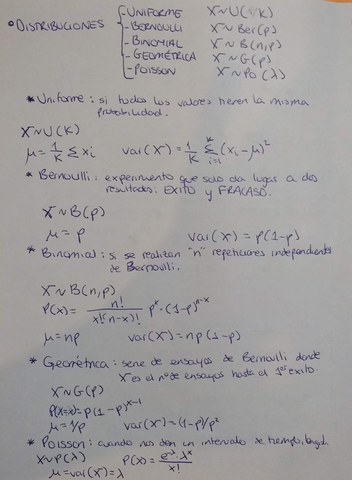 • DISTRIBUCIONES
- UNIFORME X~U(K)
- BERNOULLI X~Ber(p)
- BINOMIAL X~B(n,p)
- GEOMÉTRICA X~G(p)
- POISSON X~Po(λ)
* Uniforme: si todos los valores tienen la misma
probabilidad.
X~U(K)
μ = 1/K Σ xi   var(X) = 1/K Σ_{i=1}^{K} (xi-μ)²
* Bernoulli: experimento que solo da lugar a dos
resultados: EXITO y FRACASO.
X~B(p)
μ = p   var(X) = p(1-p)
* Binomial: si se realizan "n" repeticiones independients
de Bernoulli.
X~B(n,p)
P(x) = n!/x!(n-x)! p^x · (1-p)^{n-x}
μ = np   var(X) = np(1-p)
* Geométrica: serie de ensayos de Bernoulli donde
X es el nº de ensayos hasta el 1er exito.
X~G(p)
P(X=x) = p(1-p)^{x-1}
μ = 1/p   var(X) = (1-p)/p²
* Poisson: cuando nos den un intervalo de tiempo,
X~P(λ)   P(x) = e^{-λ}·λ^x/x!
μ = var(X) = λ